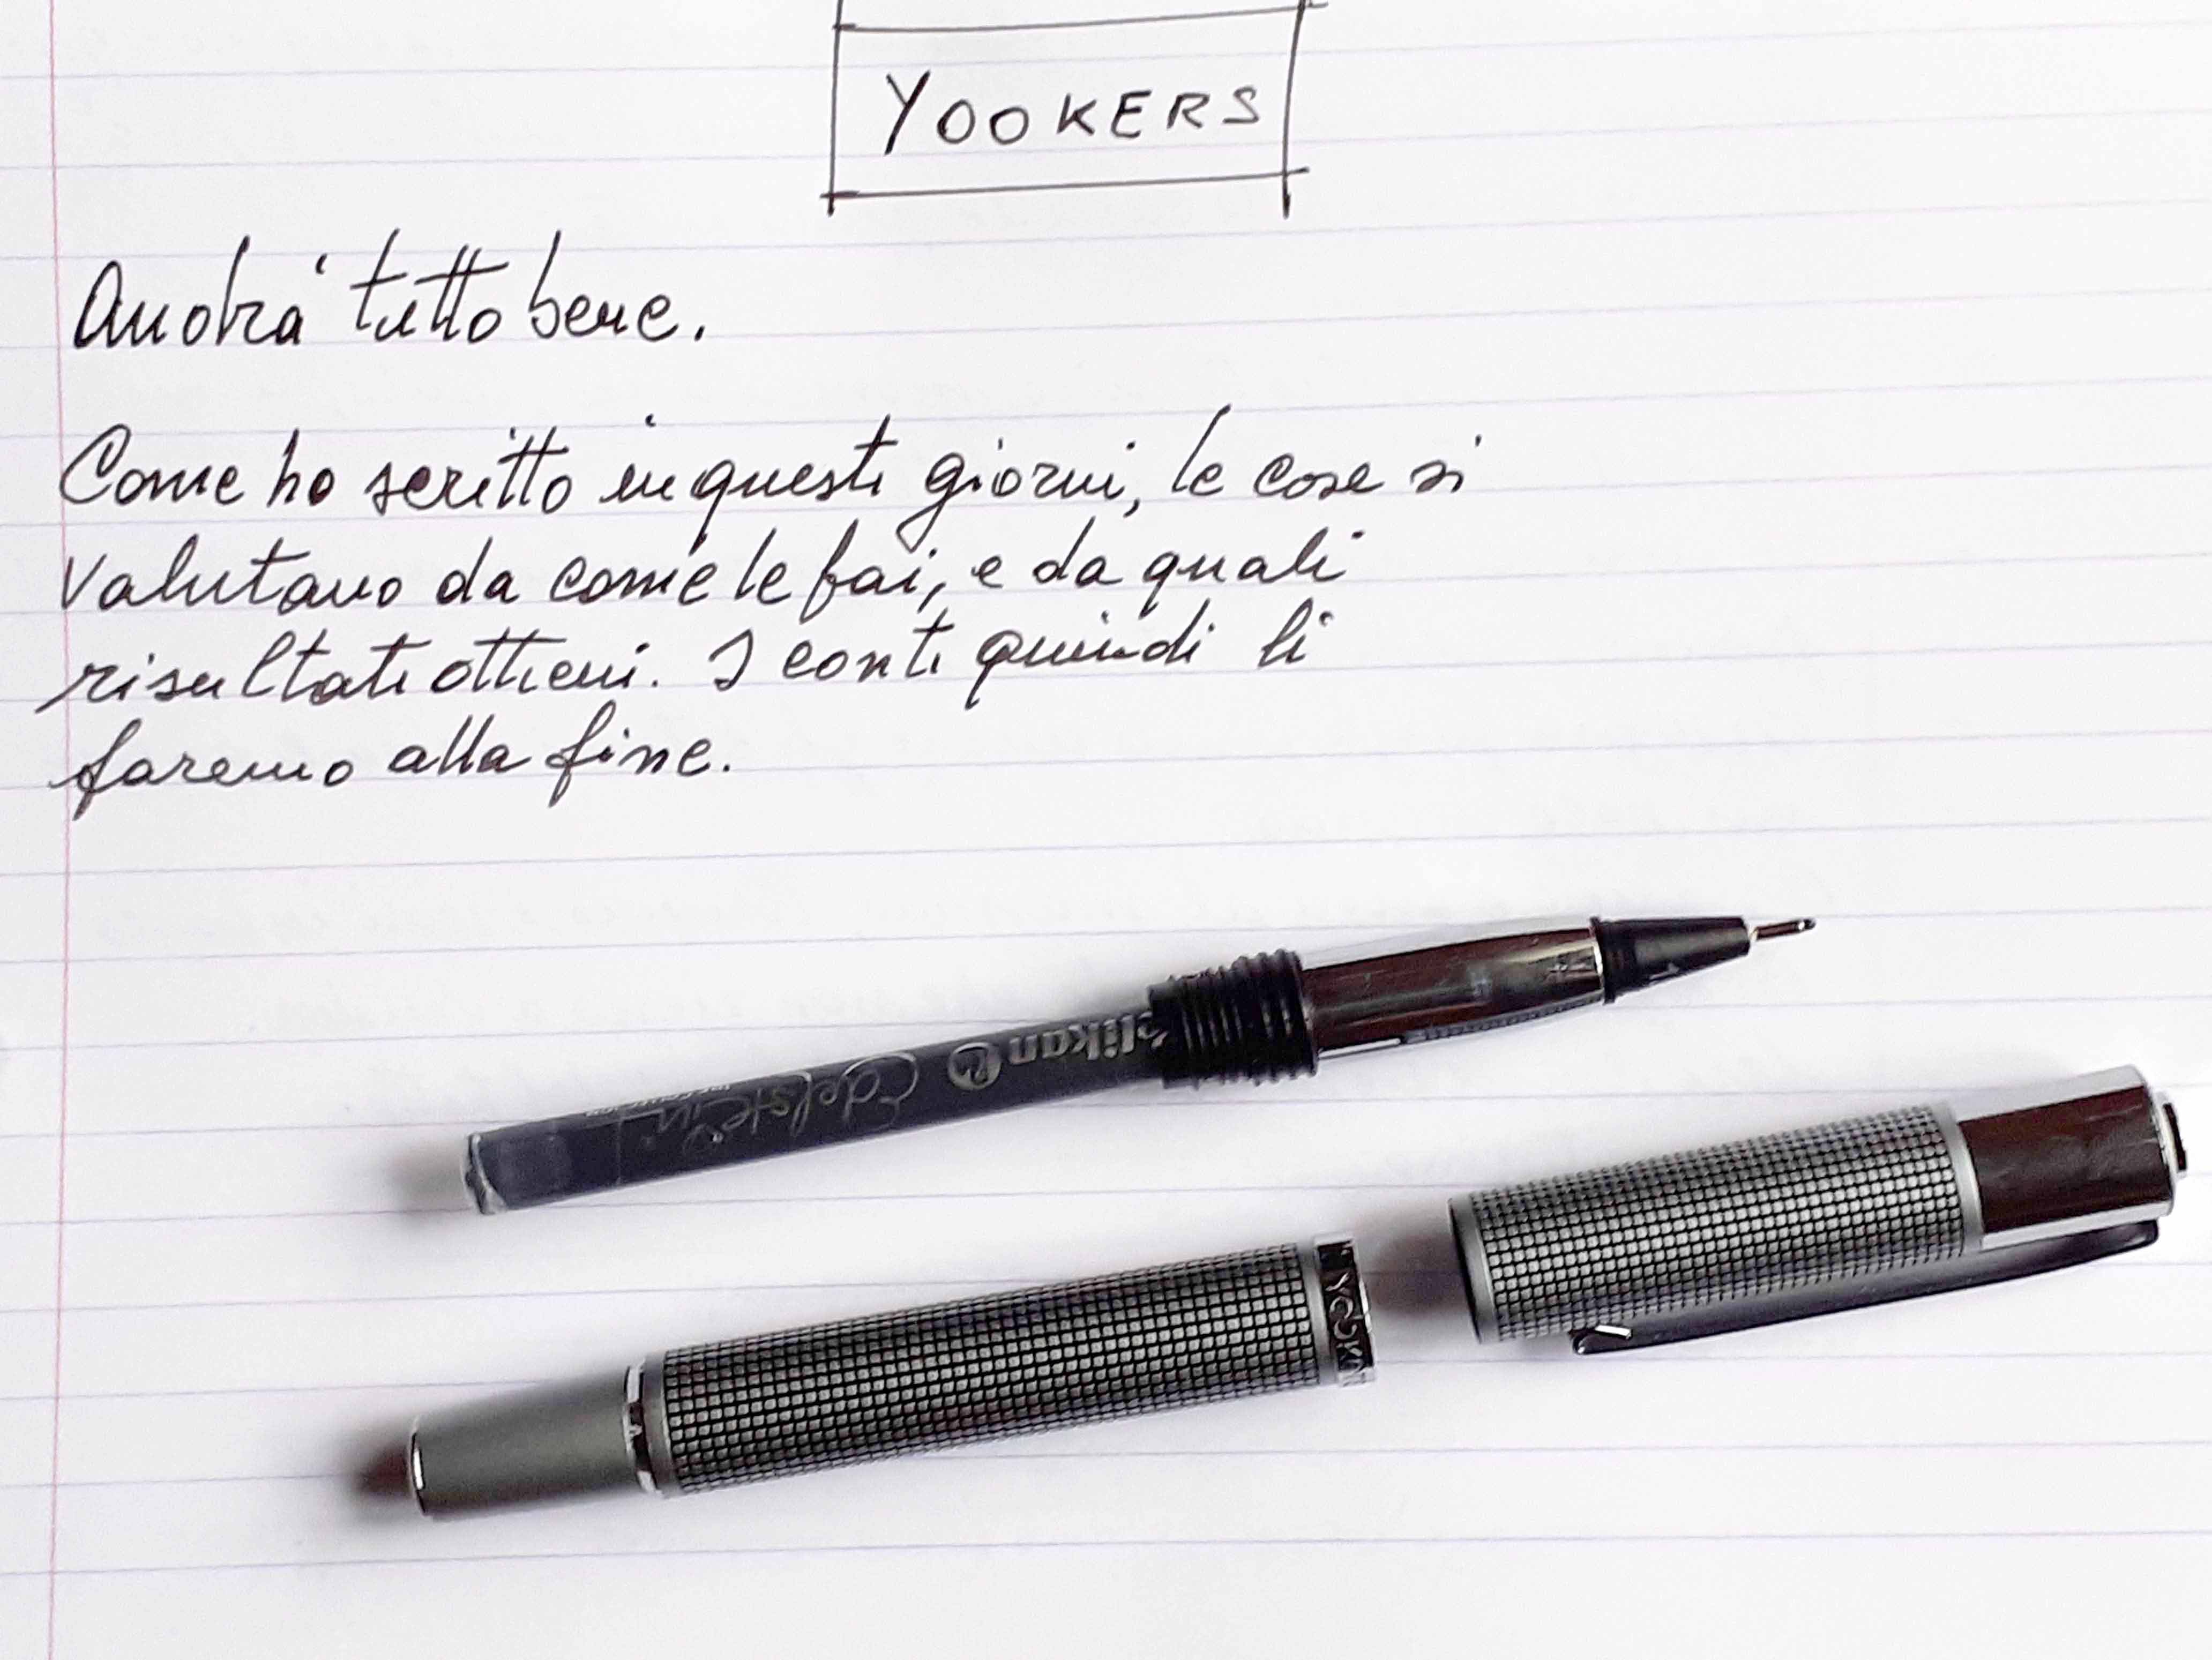 YOOKERS
Andrà tutto bene.
Come ho scritto in questi giorni, le cose si
valutano da come le fai, e da quali
risultati ottieni. I conti quindi li
faremo alla fine.
elikan
Edelstein
YOOK